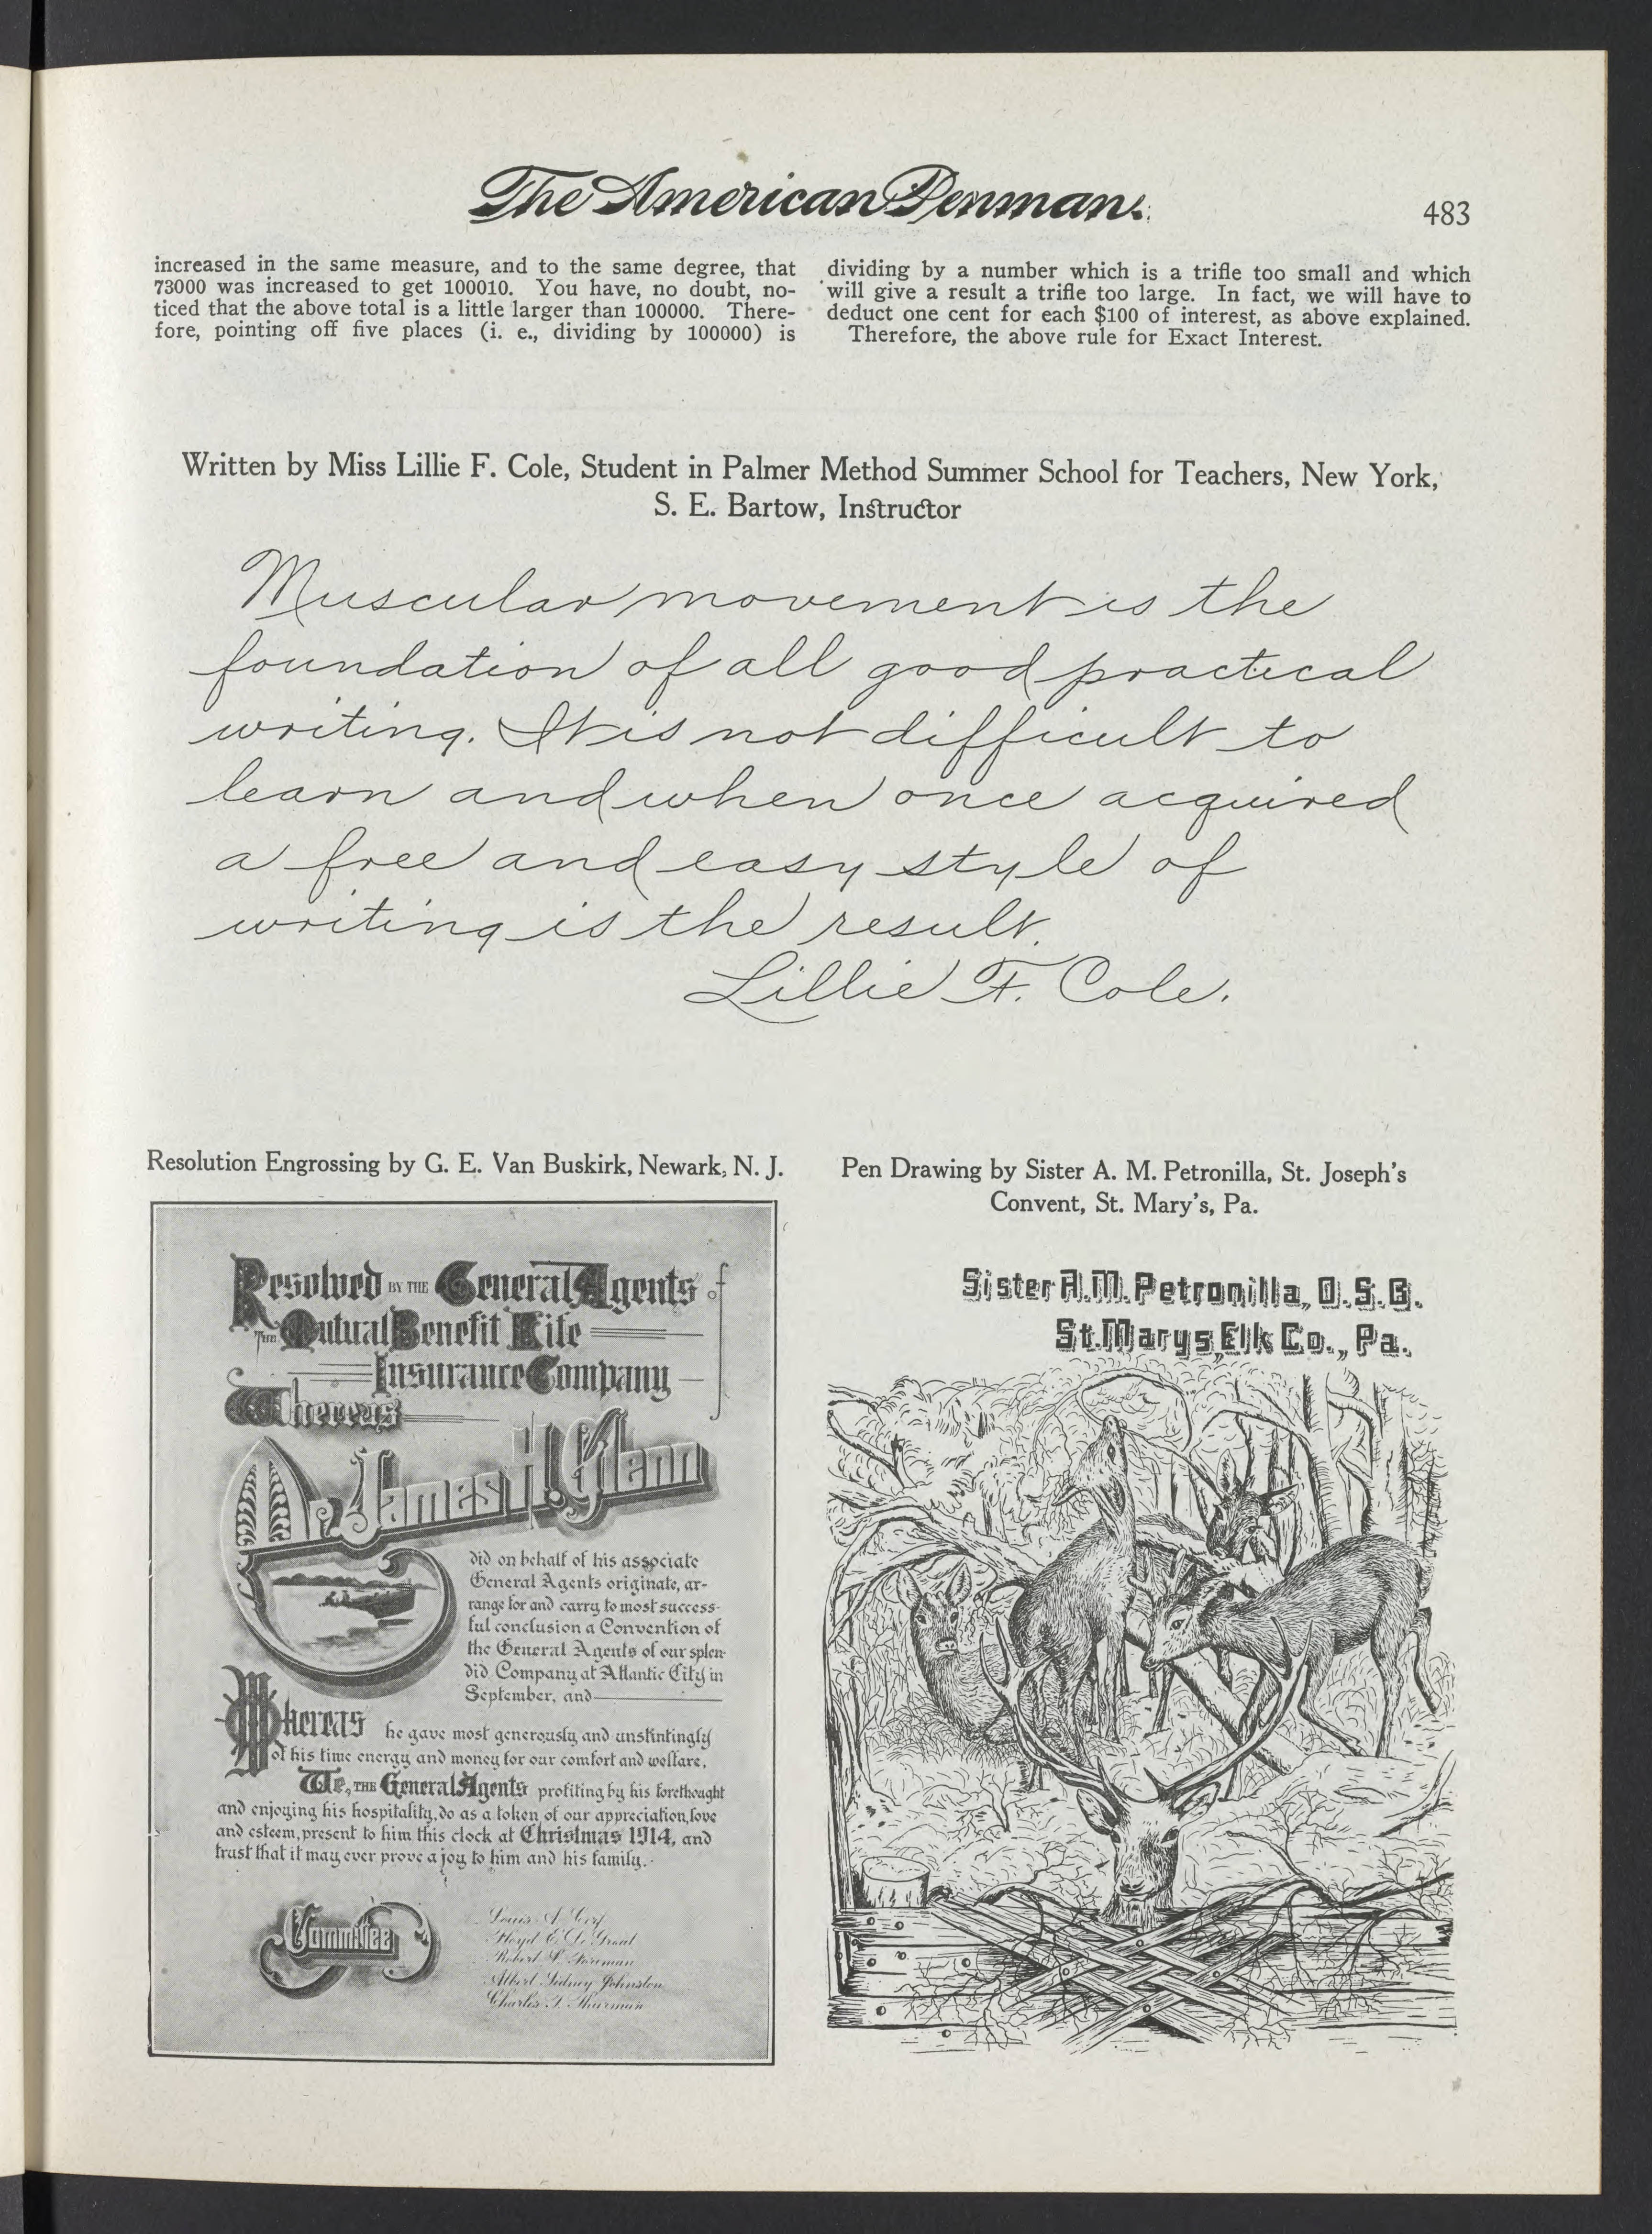 The American Penman.
483
increased in the same measure, and to the same degree, that
73000 was increased to get 100010. You have, no doubt, no-
ticed that the above total is a little larger than 100000. There-
fore, pointing off five places (i. e., dividing by 100000) is
dividing by a number which is a trifle too small and which
will give a result a trifle too large. In fact, we will have to
deduct one cent for each $100 of interest, as above explained.
Therefore, the above rule for Exact Interest.
Written by Miss Lillie F. Cole, Student in Palmer Method Summer School for Teachers, New York,
S. E. Bartow, Instructor
Muscular movement is the
foundation of all good practical
writing. It is not difficult to
learn and when once acquired
a free and easy style of
writing is the result.
Lillie F. Cole.
Resolution Engrossing by G. E. Van Buskirk, Newark, N. J.
Resolved BY THE General Agents of
THE Mutual Benefit Life
Insurance Company
Whereas
Mr. James H. Glenn
did on behalf of his associate
General Agents originate, ar-
range for and carry to most success-
ful conclusion a Convention of
the General Agents of our splen-
did Company at Atlantic City in
September, and
Whereas he gave most generously and unstintingly
of his time energy and money for our comfort and welfare,
We, THE General Agents profiting by his forethought
and enjoying his hospitality, do as a token of our appreciation, love
and esteem, present to him this clock at Christmas 1914, and
trust that it may ever prove a joy to him and his family.
Committee
Louis A. Cerf
Floyd E. De Groat
Robert L. Foreman
Albert Sidney Johnston
Charles T. Thurman
Pen Drawing by Sister A. M. Petronilla, St. Joseph's
Convent, St. Mary's, Pa.
Sister A.M. Petronilla, O.S.B.
St. Marys, Elk Co., Pa.